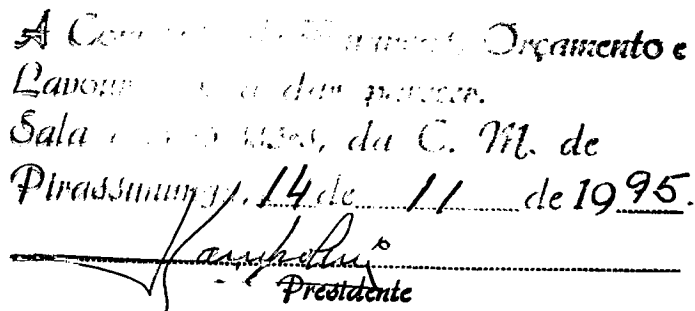 A Com de Finanças, Orçamento e
Lavoura para dar parecer.
Sala das Sessões, da C. M. de
Pirassununga, 14 de 11 de 1995.
Presidente